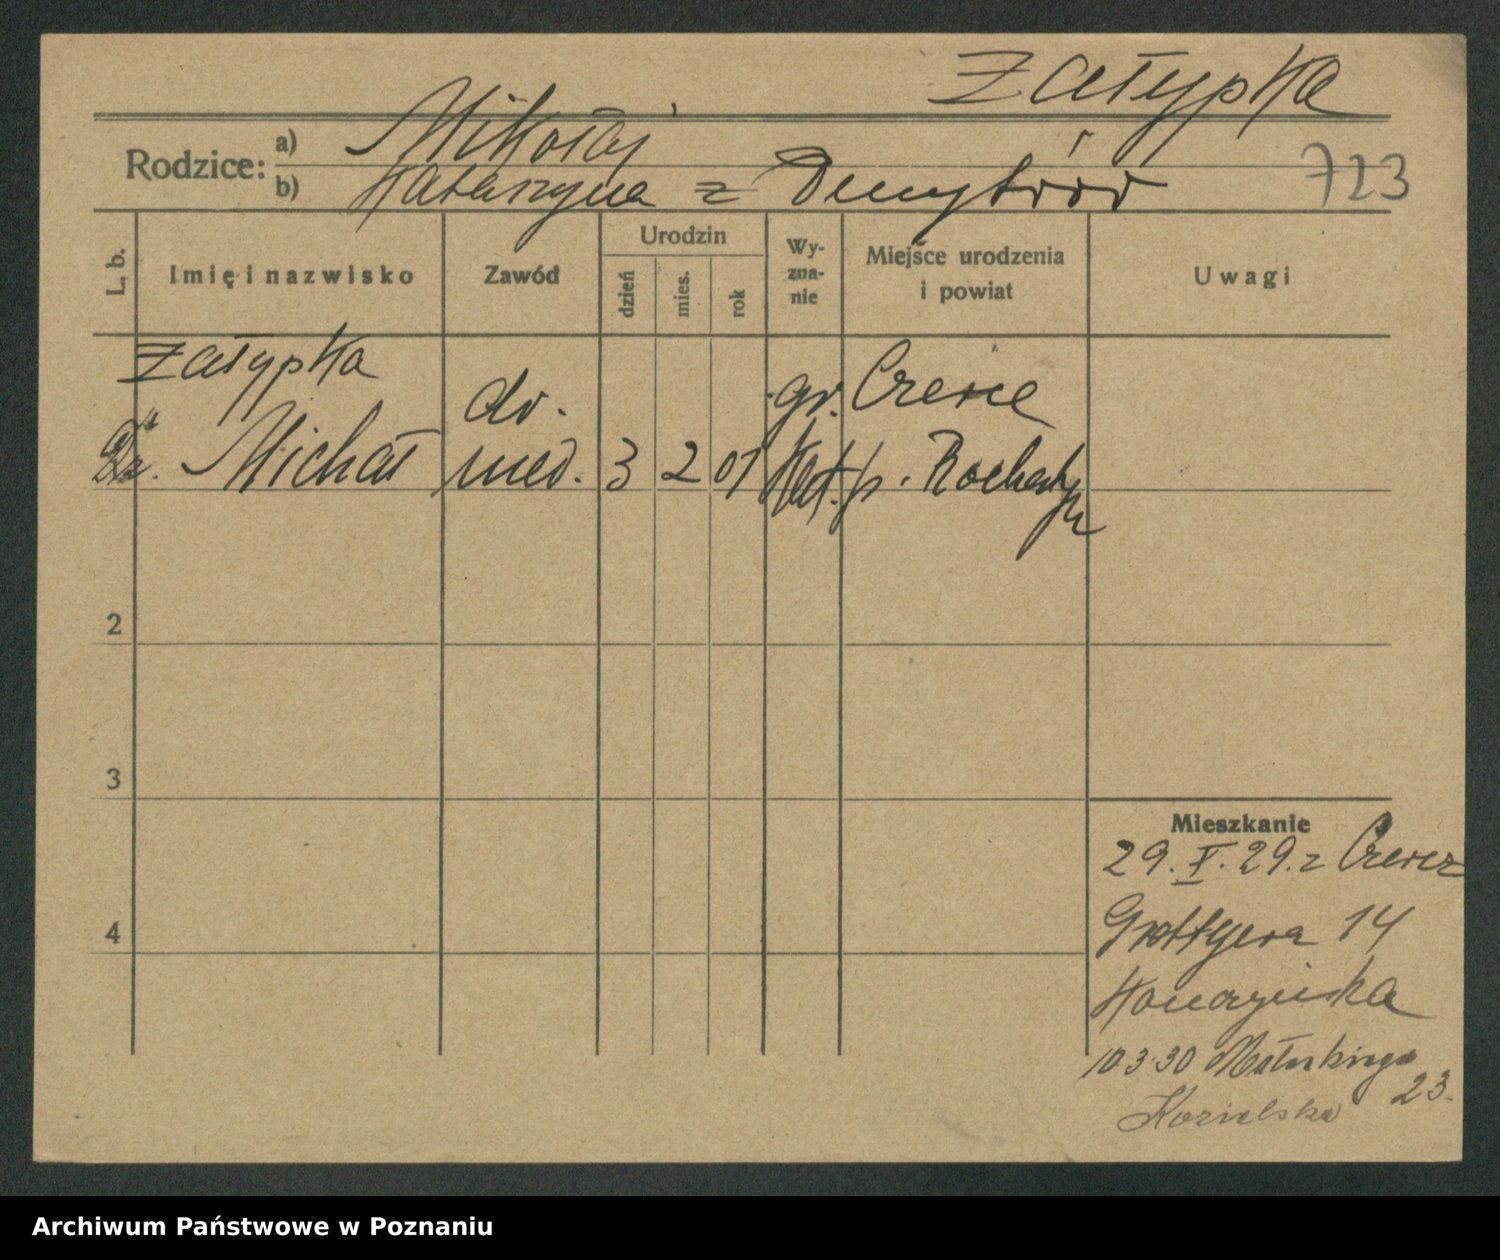 Załypka
Rodzice: a) Mikołaj
b) Katarzyna z Demytrów
723
L. b.
Imię i nazwisko
Zawód
Urodzin
dzień
mies.
rok
Wy-
zna-
nie
Miejsce urodzenia
i powiat
Uwagi
Załypka
Michał
dr.
med.
3 2 01
gr.
kat.
p.
2
3
4
Mieszkanie
29. V. 29. z
Grottgera 14
10.3.30
23.
Kozielska
Archiwum Państwowe w Poznaniu